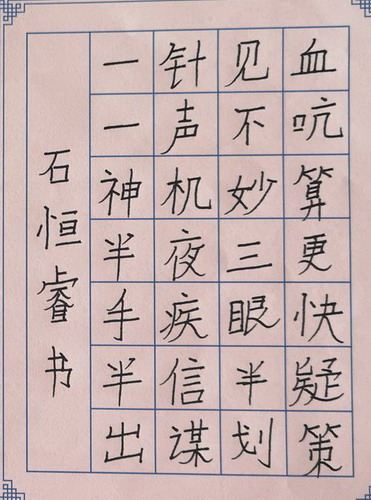 一针见血
一声不吭
神机妙算
半夜三更
手疾眼快
半信半疑
出谋划策
石恒睿书